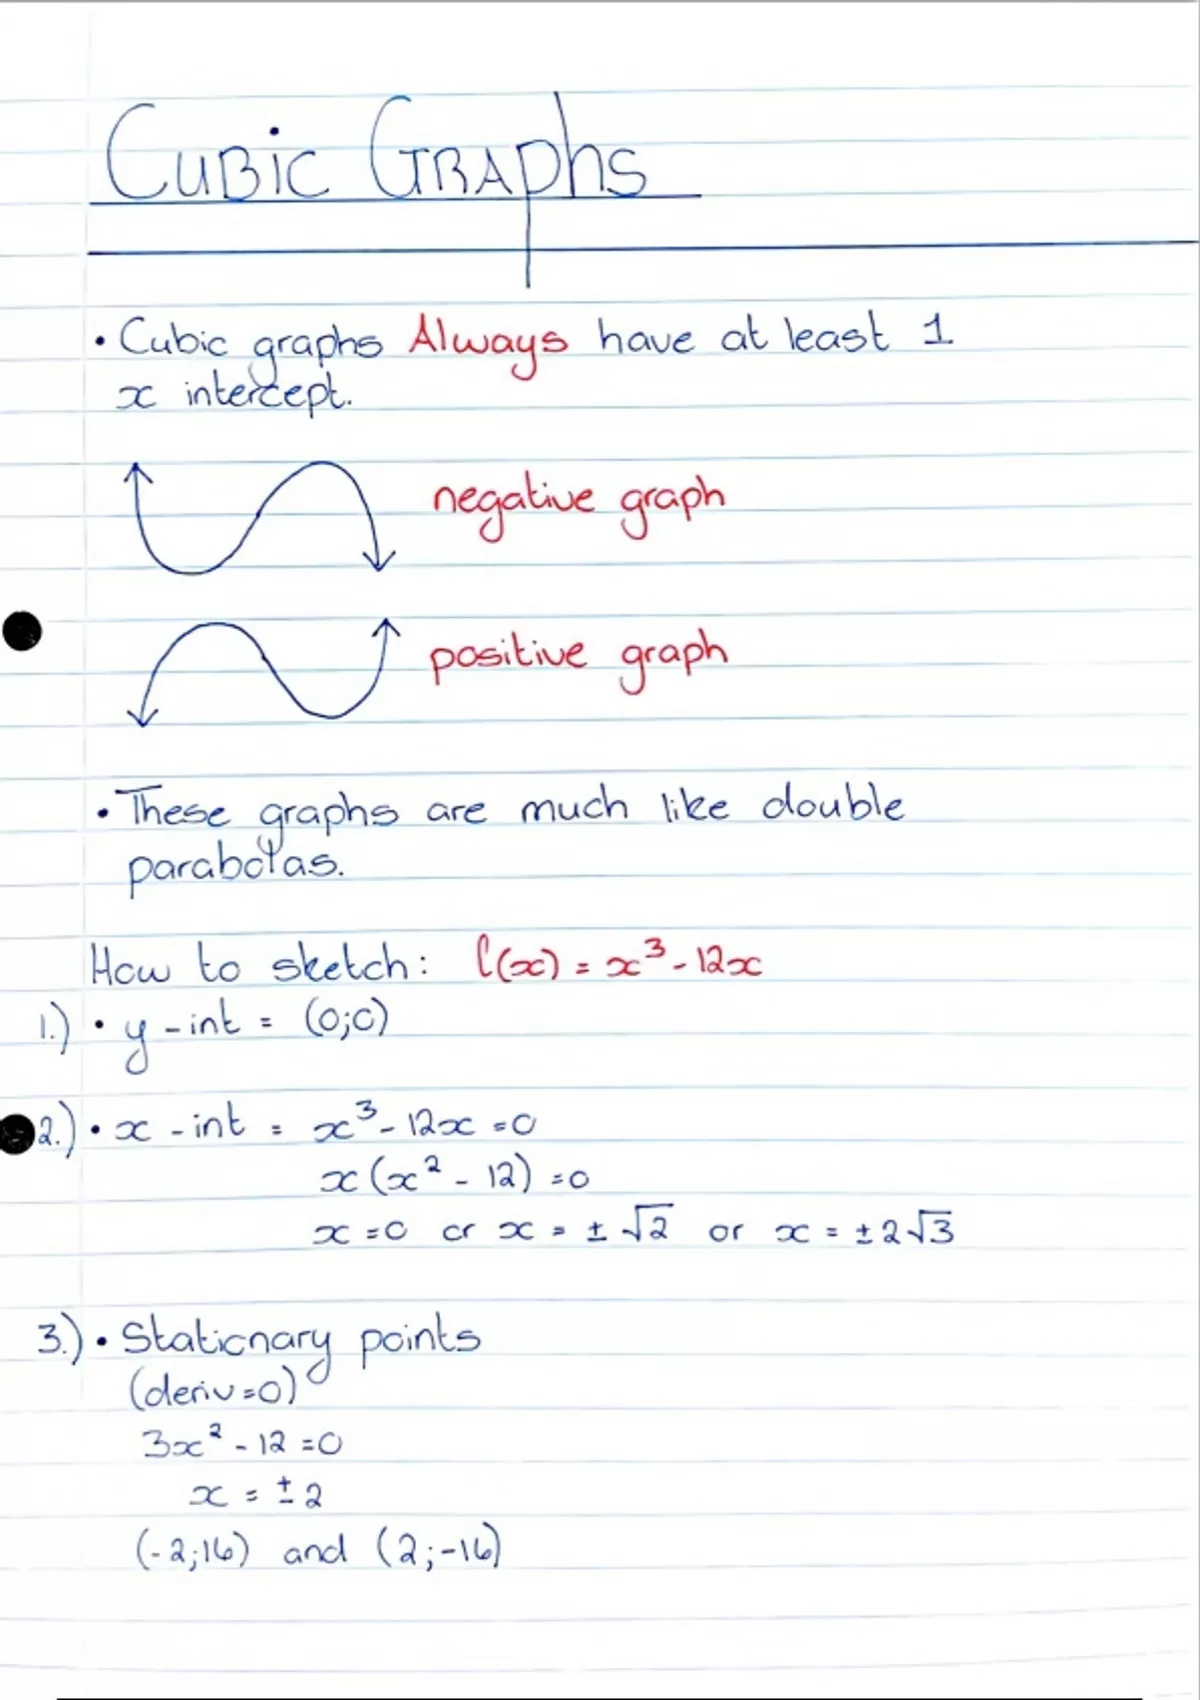 CUBIC GRAPhS
• Cubic graphs Always have at least 1
x intercept.
negative graph
positive graph
• These graphs are much like double
parabolas.
How to sketch: f(x) = x³ - 12x
1.) • y - int = (0;0)
2.) • x - int = x³ - 12x = 0
x (x² - 12) = 0
x = 0 or x = ± √2 or x = ± 2√3
3.) • Stationary points
(deriv = 0)
3x² - 12 = 0
x = ± 2
(-2;16) and (2;-16)